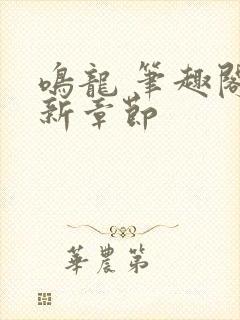 鳴龍 筆趣閣
新章節
華農第